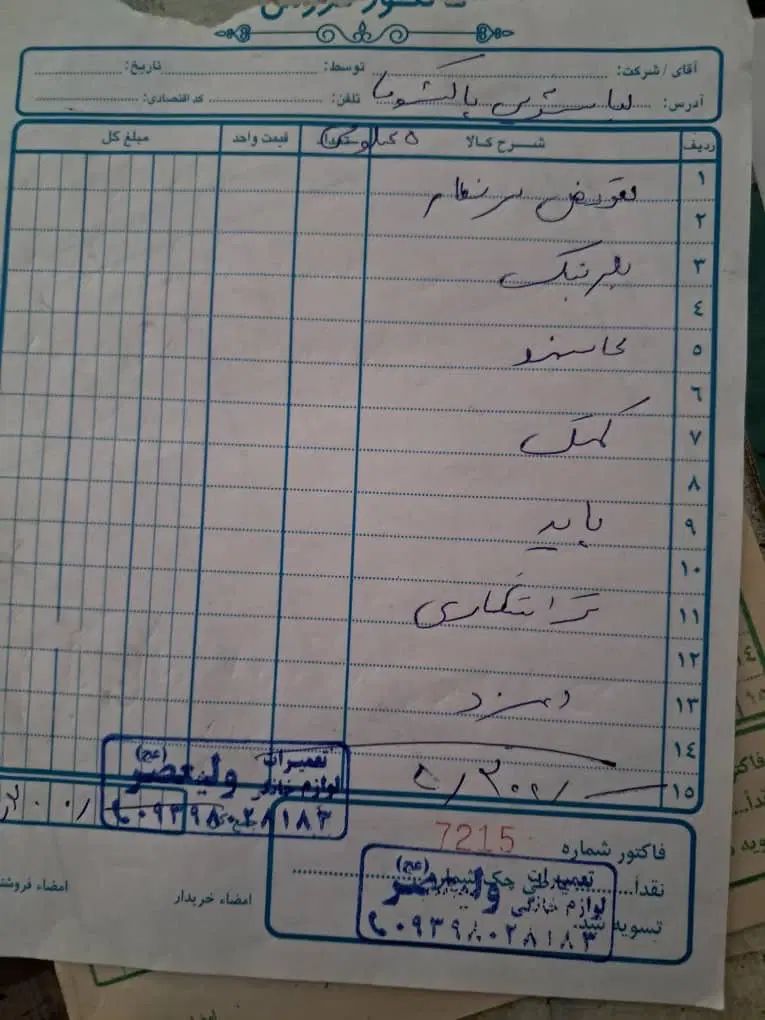 آقای / شرکت: توسط: تاریخ:
آدرس: لباسشویی پاکشوما تلفن: کد اقتصادی:
ردیف شرح کالا تعداد قیمت واحد مبلغ کل
۵ کیلویی
۱ تعویض
۲
۳ بلبرینگ
۴
۵ کاسه نمد
۶
۷ کمک
۸
۹ پایه
۱۰
۱۱
۱۲
۱۳ دستمزد
۱۴
۱۵
تعمیرات ولیعصر (عج)
لوازم خانگی
۰۹۳۹۸۰۲۸۱۸۳
فاکتور شماره 7215
نقداً
تعمیرات ولیعصر (عج)
لوازم خانگی
تسویه شد.
۰۹۳۹۸۰۲۸۱۸۳
امضاء خریدار
امضاء فروشنده